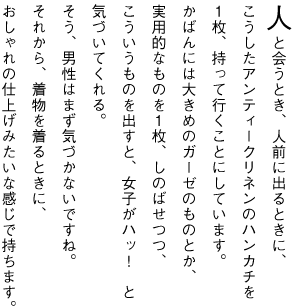 人と会うとき、人前に出るときに、
こうしたアンティークリネンのハンカチを
1枚、持って行くことにしています。
かばんには大きめのガーゼのものとか、
実用的なものを1枚、しのばせつつ、
こういうものを出すと、女子がハッ！　と
気づいてくれる。
そう、男性はまず気づかないですね。
それから、着物を着るときに、
おしゃれの仕上げみたいな感じで持ちます。